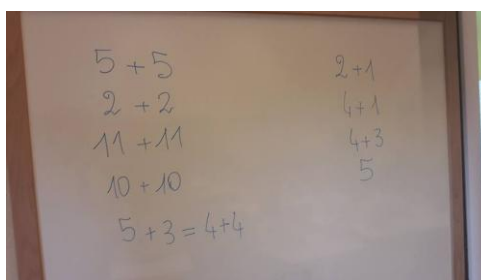 5 + 5
2 + 2
11 + 11
10 + 10
5 + 3 = 4+4
2+1
4+1
4+3
5